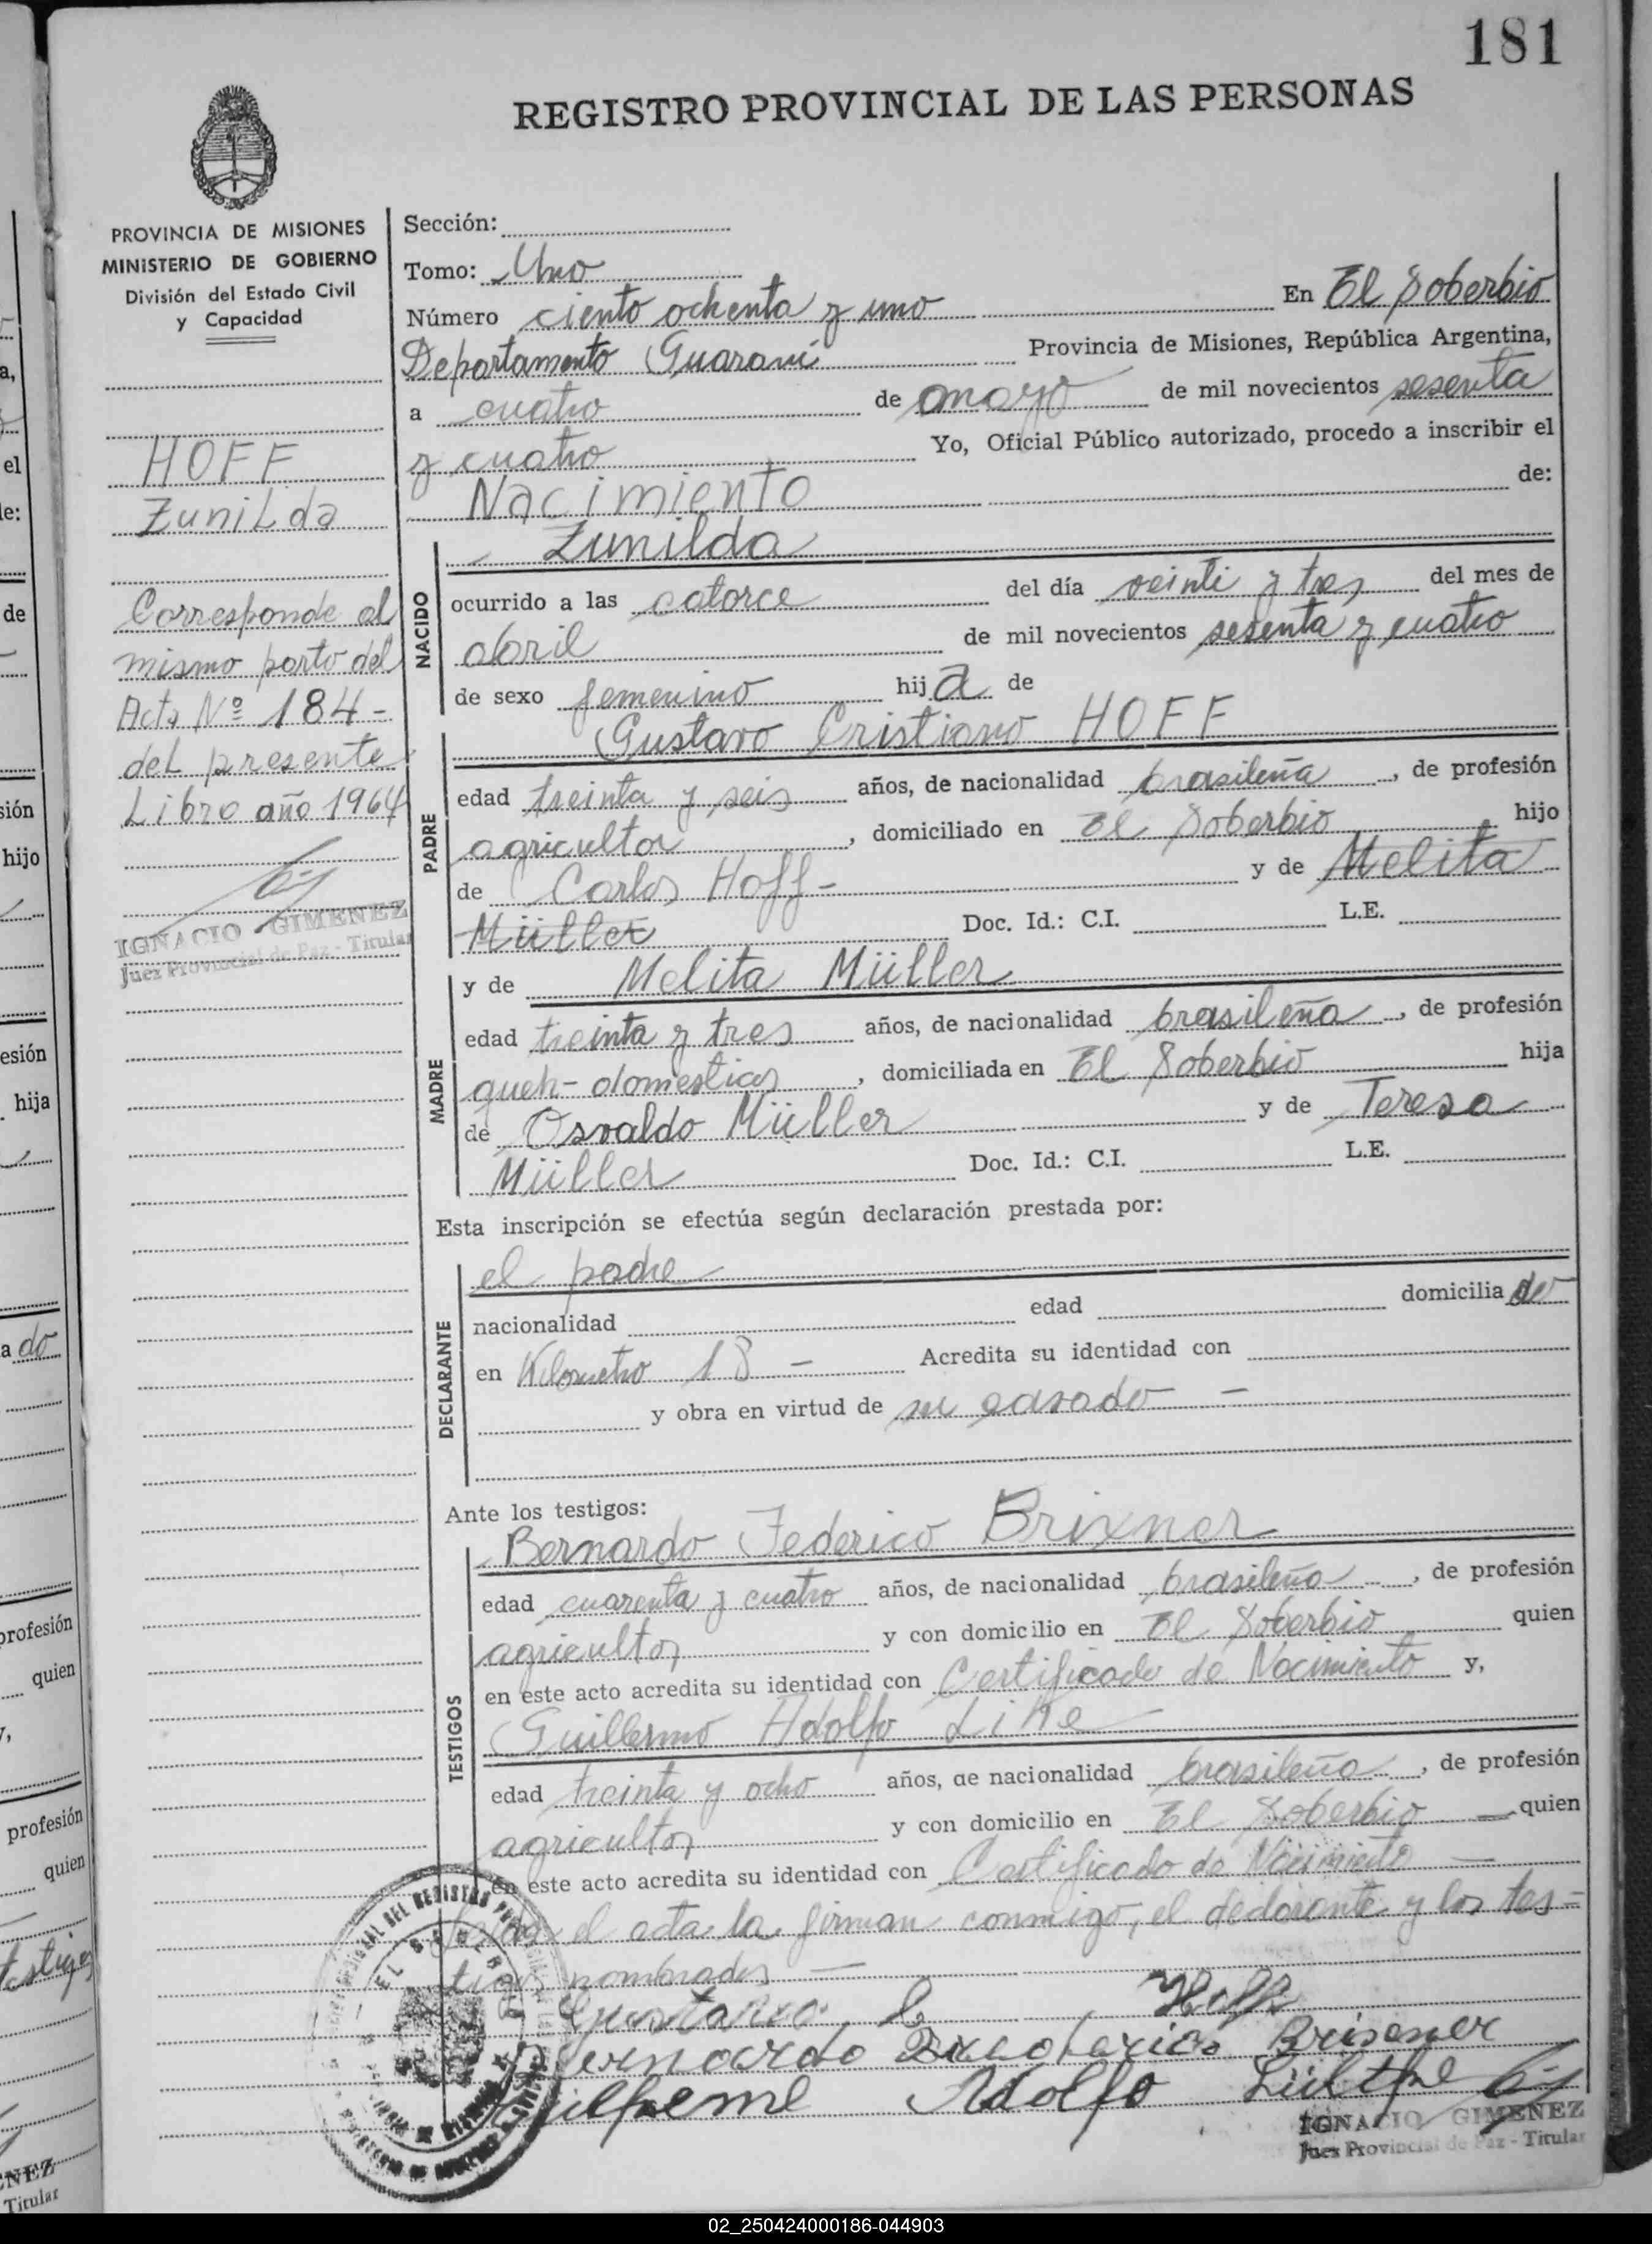 181
REGISTRO PROVINCIAL DE LAS PERSONAS
PROVINCIA DE MISIONES
MINISTERIO DE GOBIERNO
División del Estado Civil
y Capacidad
HOFF
Zunilda
Corresponde al
mismo parto del
Acta Nº 184 -
del presente
Libro año 1964
IGNACIO GIMENEZ
Juez Provincial de Paz - Titular
Sección:
Tomo: Uno
Número ciento ochenta y uno En El Soberbio
Departamento Guaraní Provincia de Misiones, República Argentina,
a cuatro de mayo de mil novecientos sesenta
y cuatro Yo, Oficial Público autorizado, procedo a inscribir el
Nacimiento de:
NACIDO
Zunilda
ocurrido a las catorce del día veinti y tres del mes de
abril de mil novecientos sesenta y cuatro
de sexo femenino hija de
PADRE
Gustavo Cristiano HOFF
edad treinta y seis años, de nacionalidad brasileña, de profesión
agricultor, domiciliado en El Soberbio hijo
de Carlos Hoff - y de Melita
Müller Doc. Id.: C.I. L.E.
MADRE
y de Melita Müller
edad treinta y tres años, de nacionalidad brasileña, de profesión
queh- domesticos, domiciliada en El Soberbio hija
de Osvaldo Müller y de Teresa
Müller Doc. Id.: C.I. L.E.
Esta inscripción se efectúa según declaración prestada por:
DECLARANTE
el padre
nacionalidad edad domiciliado
en Kilometro 18 - Acredita su identidad con
y obra en virtud de ser casado -
Ante los testigos:
TESTIGOS
Bernardo Federico Brixner
edad cuarenta y cuatro años, de nacionalidad brasileño, de profesión
agricultor y con domicilio en El Soberbio quien
en este acto acredita su identidad con Certificado de Nacimiento y,
Guillermo Adolfo Like
edad treinta y ocho años, de nacionalidad brasileño, de profesión
agricultor y con domicilio en El Soberbio - quien
en este acto acredita su identidad con Certificado de Nacimiento -
Leída el acta la firman conmigo, el declarante y los tes=
tigos nombrados -
Gustavo C. Hoff
Bernardo Brissner
Adolfo
IGNACIO GIMENEZ
Juez Provincial de Paz - Titular
EL SOBERBIO
a,
el
le:
de
sión
hijo
esión
hija
ado
profesión
quien
y,
profesión
quien
testigos
ENEZ
Titular
02_250424000186-044903